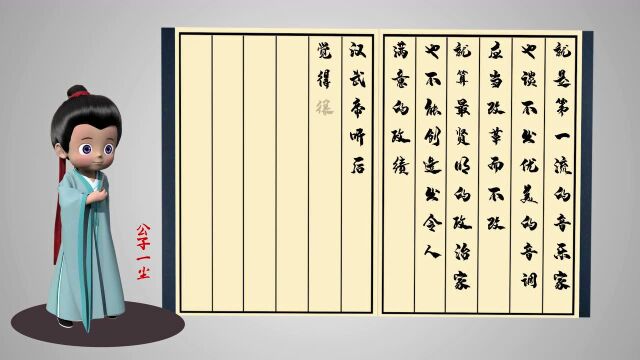 就是第一流的音乐家
也谈不出优美的音调
应当改革而不改
就算最贤明的政治家
也不能创造出令人
满意的政绩
汉武帝听后
觉得很
公子一尘